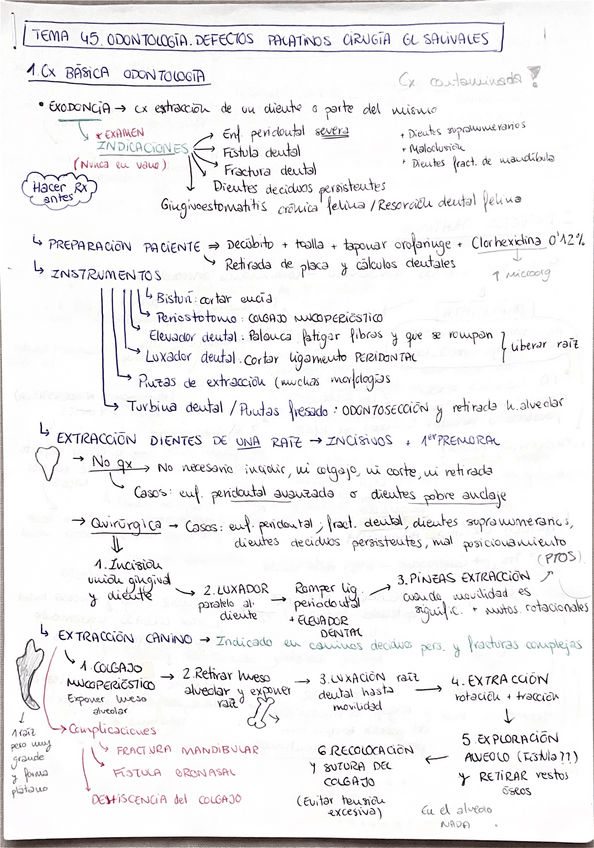 TEMA 45. ODONTOLOGÍA. DEFECTOS PALATINOS CIRUGÍA GL SALIVALES
1. Cx BÁSICA ODONTOLOGÍA
Cx contaminada!
• EXODONCIA → cx extracción de un diente o parte del mismo
* EXAMEN
INDICACIONES
(Nunca en vano)
Hacer Rx antes
→ Enf periodontal severa
→ Fístula dental
→ Fractura dental
Dientes deciduos persistentes
Gingivoestomatitis crónica felina / Resorción dental felina
+ Dientes supranumerarios
+ Maloclusión
+ Dientes fract. de mandíbula
↳ PREPARACIÓN PACIENTE ⇒ Decúbito + toalla + taponar orofaringe + Clorhexidina 0'12%
↳ Retirada de placa y cálculos dentales
↑ microorg
↳ INSTRUMENTOS
↳ Bisturí: cortar encía
→ Periostotomo: COLGAJO MUCOPERIÓSTICO
→ Elevador dental: Palanca fatigar fibras y que se rompan
→ Luxador dental: Cortar ligamento PERIDONTAL
} liberar raíz
→ Pinzas de extracción (muchas morfologías
→ Turbina dental / Puntas fresado: ODONTOSECCIÓN y retirada h. alveolar
↳ EXTRACCIÓN DIENTES DE UNA RAÍZ → INCISIVOS + 1er PREMORAL
→ No qx → No necesario incidir, ni colgajo, ni corte, ni retirada
↳ Casos: enf. peridontal avanzada o dientes pobre anclaje
→ Quirúrgica → Casos: enf. peridontal, fract. dental, dientes supranumerarios,
dientes deciduos persistentes, mal posicionamiento
(PTOS)
1. Incisión
unión gingival
y diente
→ 2. LUXADOR
paralelo al
diente
→ Romper lig.
periodontal
+ ELEVADOR
DENTAL
→ 3. PINZAS EXTRACCIÓN
cuando movilidad es
signific. + mvtos. rotacionales
↳ EXTRACCIÓN CANINO → Indicado en caninos deciduos pers. y fracturas complejas
1. COLGAJO
MUCOPERIÓSTICO
Exponer hueso
alveolar
→ 2. Retirar hueso
alveolar y exponer
raíz
→ 3. LUXACIÓN raíz
dental hasta
movilidad
→ 4. EXTRACCIÓN
rotación + tracción
5. EXPLORACIÓN
ALVEOLO (Fístula??)
y RETIRAR restos
óseos
← 6. RECOLOCACIÓN
Y SUTURA DEL
COLGAJO
(Evitar tensión
excesiva)
En el alveolo
NADA
1 raíz
pero muy
grande
y forma
plátano
→ Complicaciones
↳ FRACTURA MANDIBULAR
↳ FÍSTULA ORONASAL
DEHISCENCIA del COLGAJO